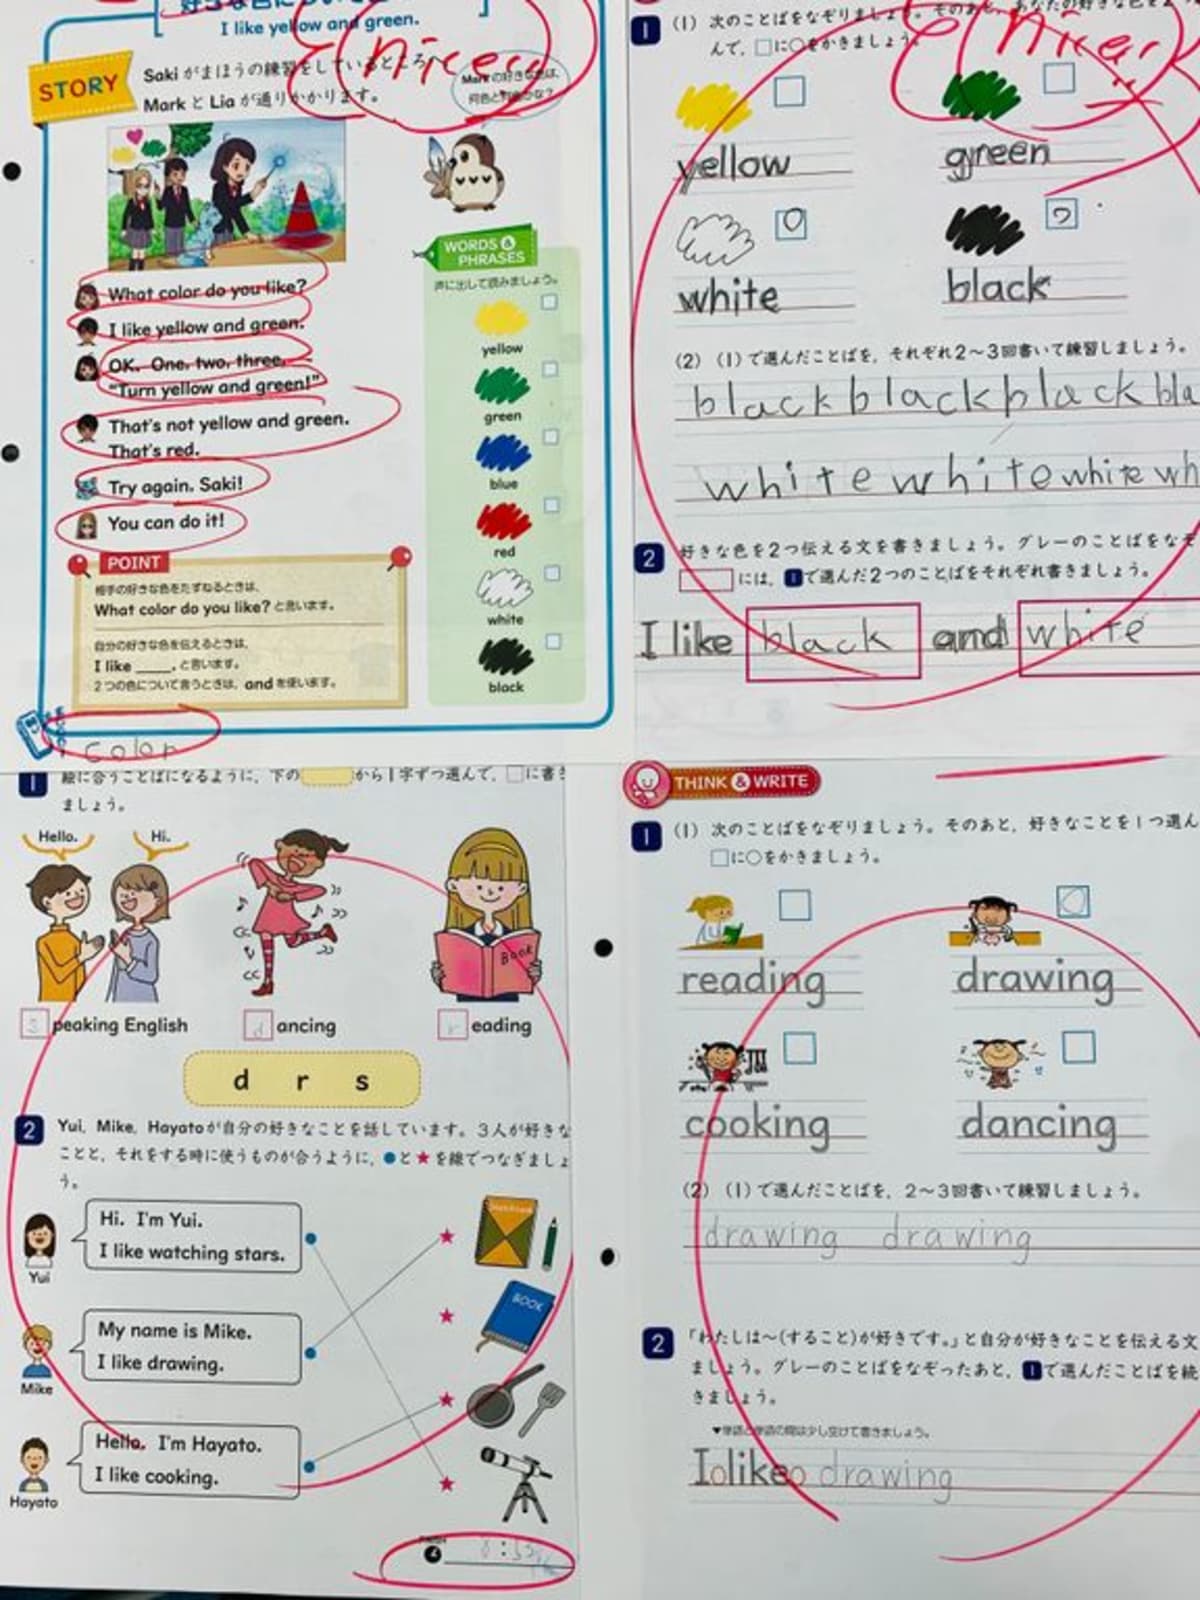 I like yellow and green.
Nice!!
STORY
Saki がまほうの練習をしているところへ
Mark と Lia が通りかかります。
Mark の好きな色は、
何色と何色かな?
What color do you like?
I like yellow and green.
OK. One, two, three,
"Turn yellow and green!"
That's not yellow and green.
That's red.
Try again, Saki!
You can do it!
POINT
相手の好きな色をたずねるときは、
What color do you like? と言います。
自分の好きな色を伝えるときは、
I like ____. と言います。
2つの色について言うときは、and を使います。
color
WORDS & PHRASES
声に出して読みましょう。
yellow
green
blue
red
white
black
1 (1) 次のことばをなぞりましょう。そのあと、あなたの好きな色を2つ
んで、□に○をかきましょう。
Nice!!
yellow
green
white
black
(2) (1)で選んだことばを、それぞれ2~3回書いて練習しましょう。
black black black bla
white white white wh
2 好きな色を2つ伝える文を書きましょう。グレーのことばをなぞ
には、1で選んだ2つのことばをそれぞれ書きましょう。
I like black and white
1 絵に合うことばになるように、下の から1字ずつ選んで、□に書き
ましょう。
Hello.
Hi.
Book
speaking English
dancing
reading
d r s
2 Yui, Mike, Hayatoが自分の好きなことを話しています。3人が好きな
ことと、それをする時に使うものが合うように、●と★を線でつなぎましょ
う。
Hi. I'm Yui.
I like watching stars.
Yui
My name is Mike.
I like drawing.
Mike
Hello. I'm Hayato.
I like cooking.
Hayato
BOOK
THINK & WRITE
1 (1) 次のことばをなぞりましょう。そのあと、好きなことを1つ選ん
□に○をかきましょう。
reading
drawing
cooking
dancing
(2) (1)で選んだことばを、2~3回書いて練習しましょう。
drawing drawing
2 「わたしは~(すること)が好きです。」と自分が好きなことを伝える文
ましょう。グレーのことばをなぞったあと、1で選んだことばを続
きましょう。
▼単語と単語の間は少し空けて書きましょう。
I like drawing